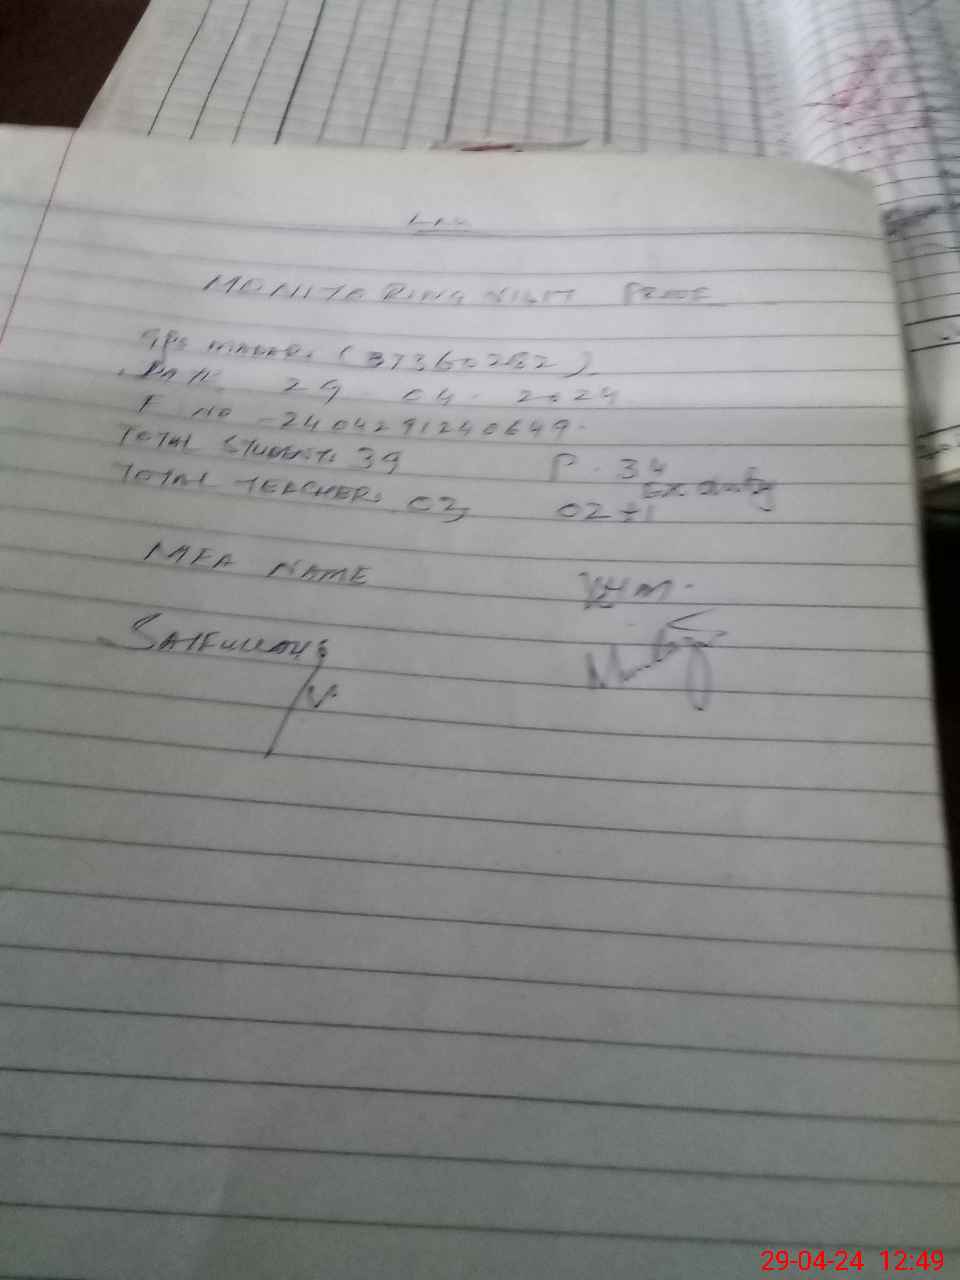 MONITORING VISIT PROF
GPS (37360282)
DATE 29-04-2024
F NO -2404291240649.
TOTAL STUDENTS 39 P. 34
TOTAL TEACHERS 03, 02 +1 Ex duty
MEA NAME
SAIFULLAH
29-04-24 12:49